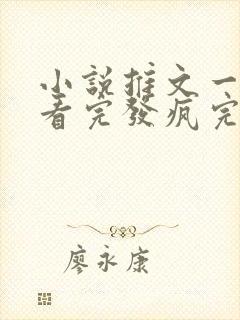 小說推文一
看完發瘋完
廖永康